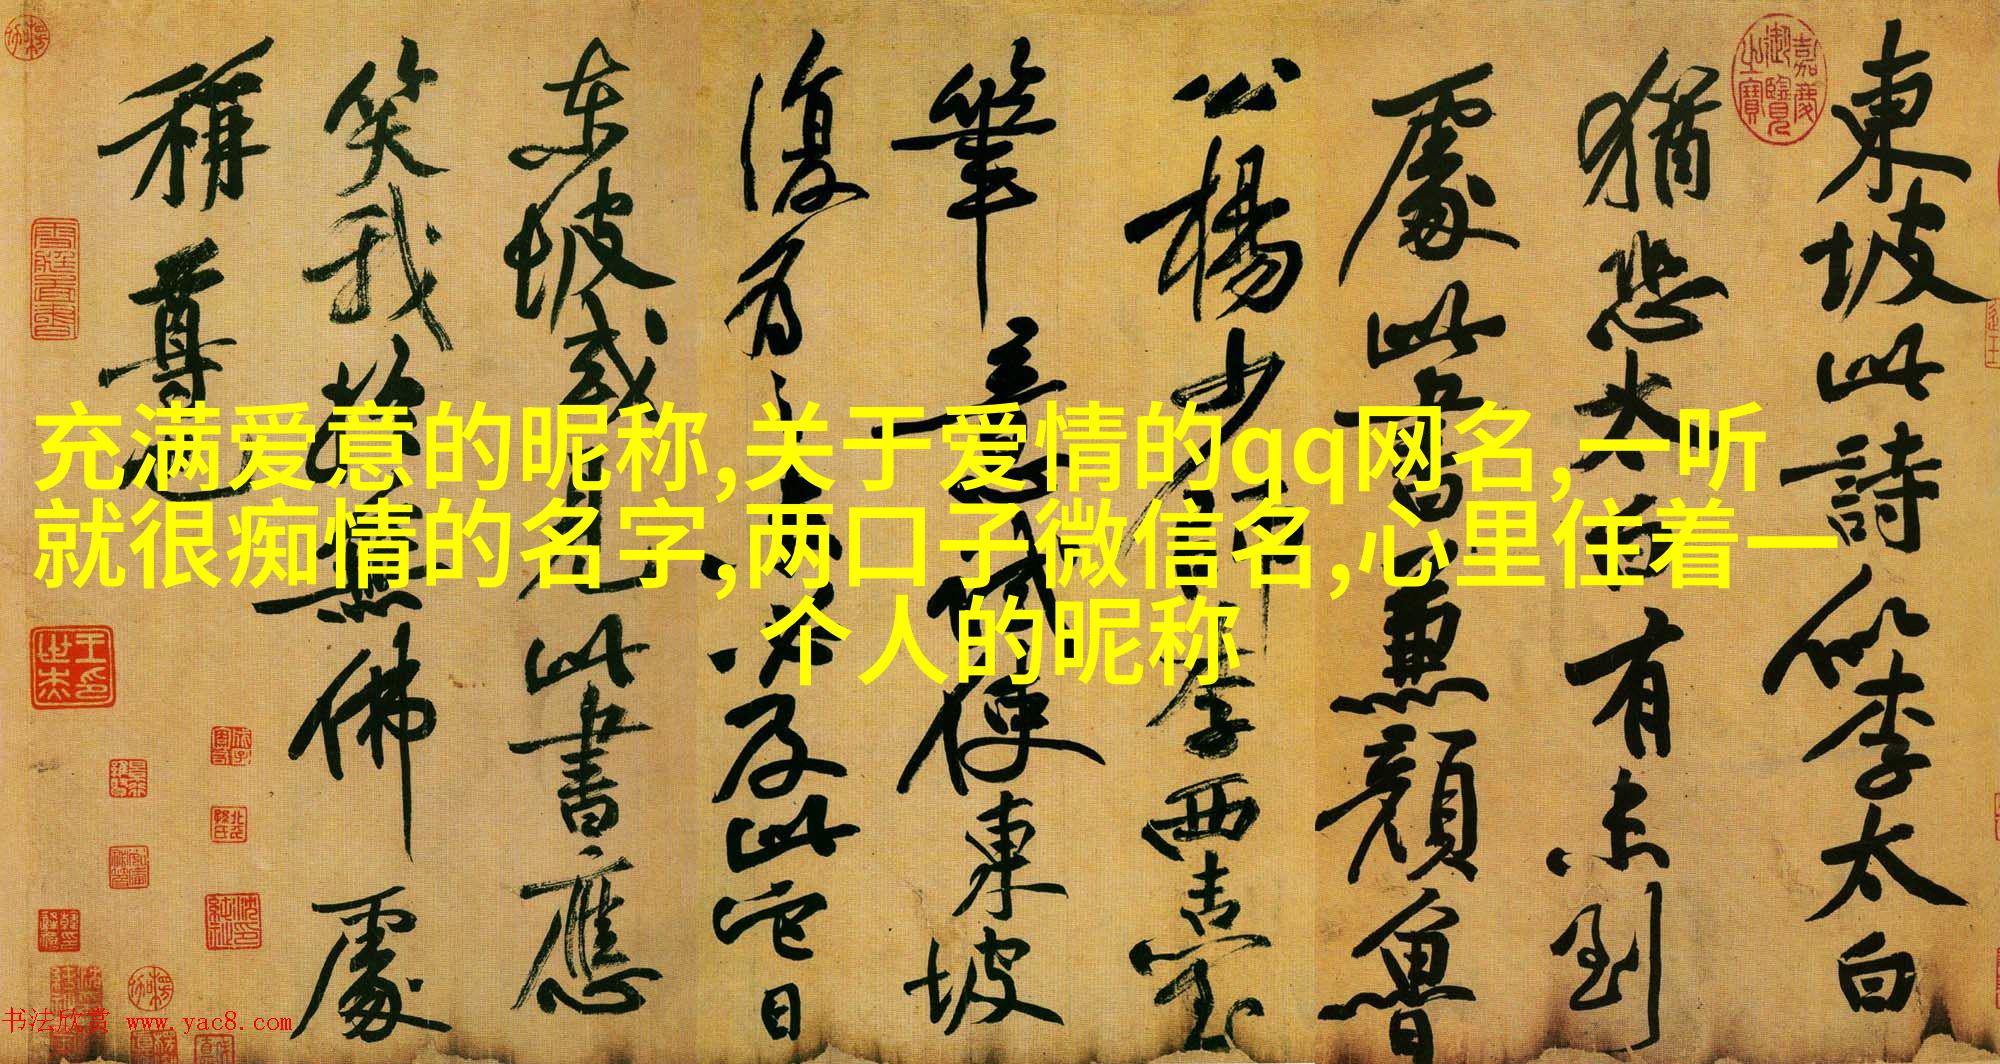 東坡此詩似李太白
猶恐太白有未到
處此書兼顏魯
公楊少師李西臺
筆意試使東坡
復為之未必及此它日
東坡或見此書應
笑我於無佛處
稱尊也
充满爱意的昵称,关于爱情的qq网名,一听
就很痴情的名字,两口子微信名,心里住着一
个人的昵称
嘉慶御覽之寶
书法欣赏 www.yac8.com